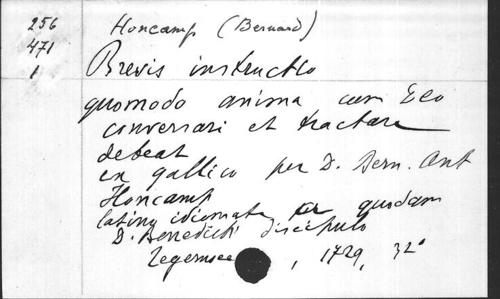 256 Honcamp (Bernard)
471
1 Brevis instructio
quomodo anima cum Deo
conversari et tractare
debeat
ex gallico per D. Bern. Ant
Honcamp
latino idiomate per quodam
D. Benedicti discipulo
Tegernsee, 1729, 32°